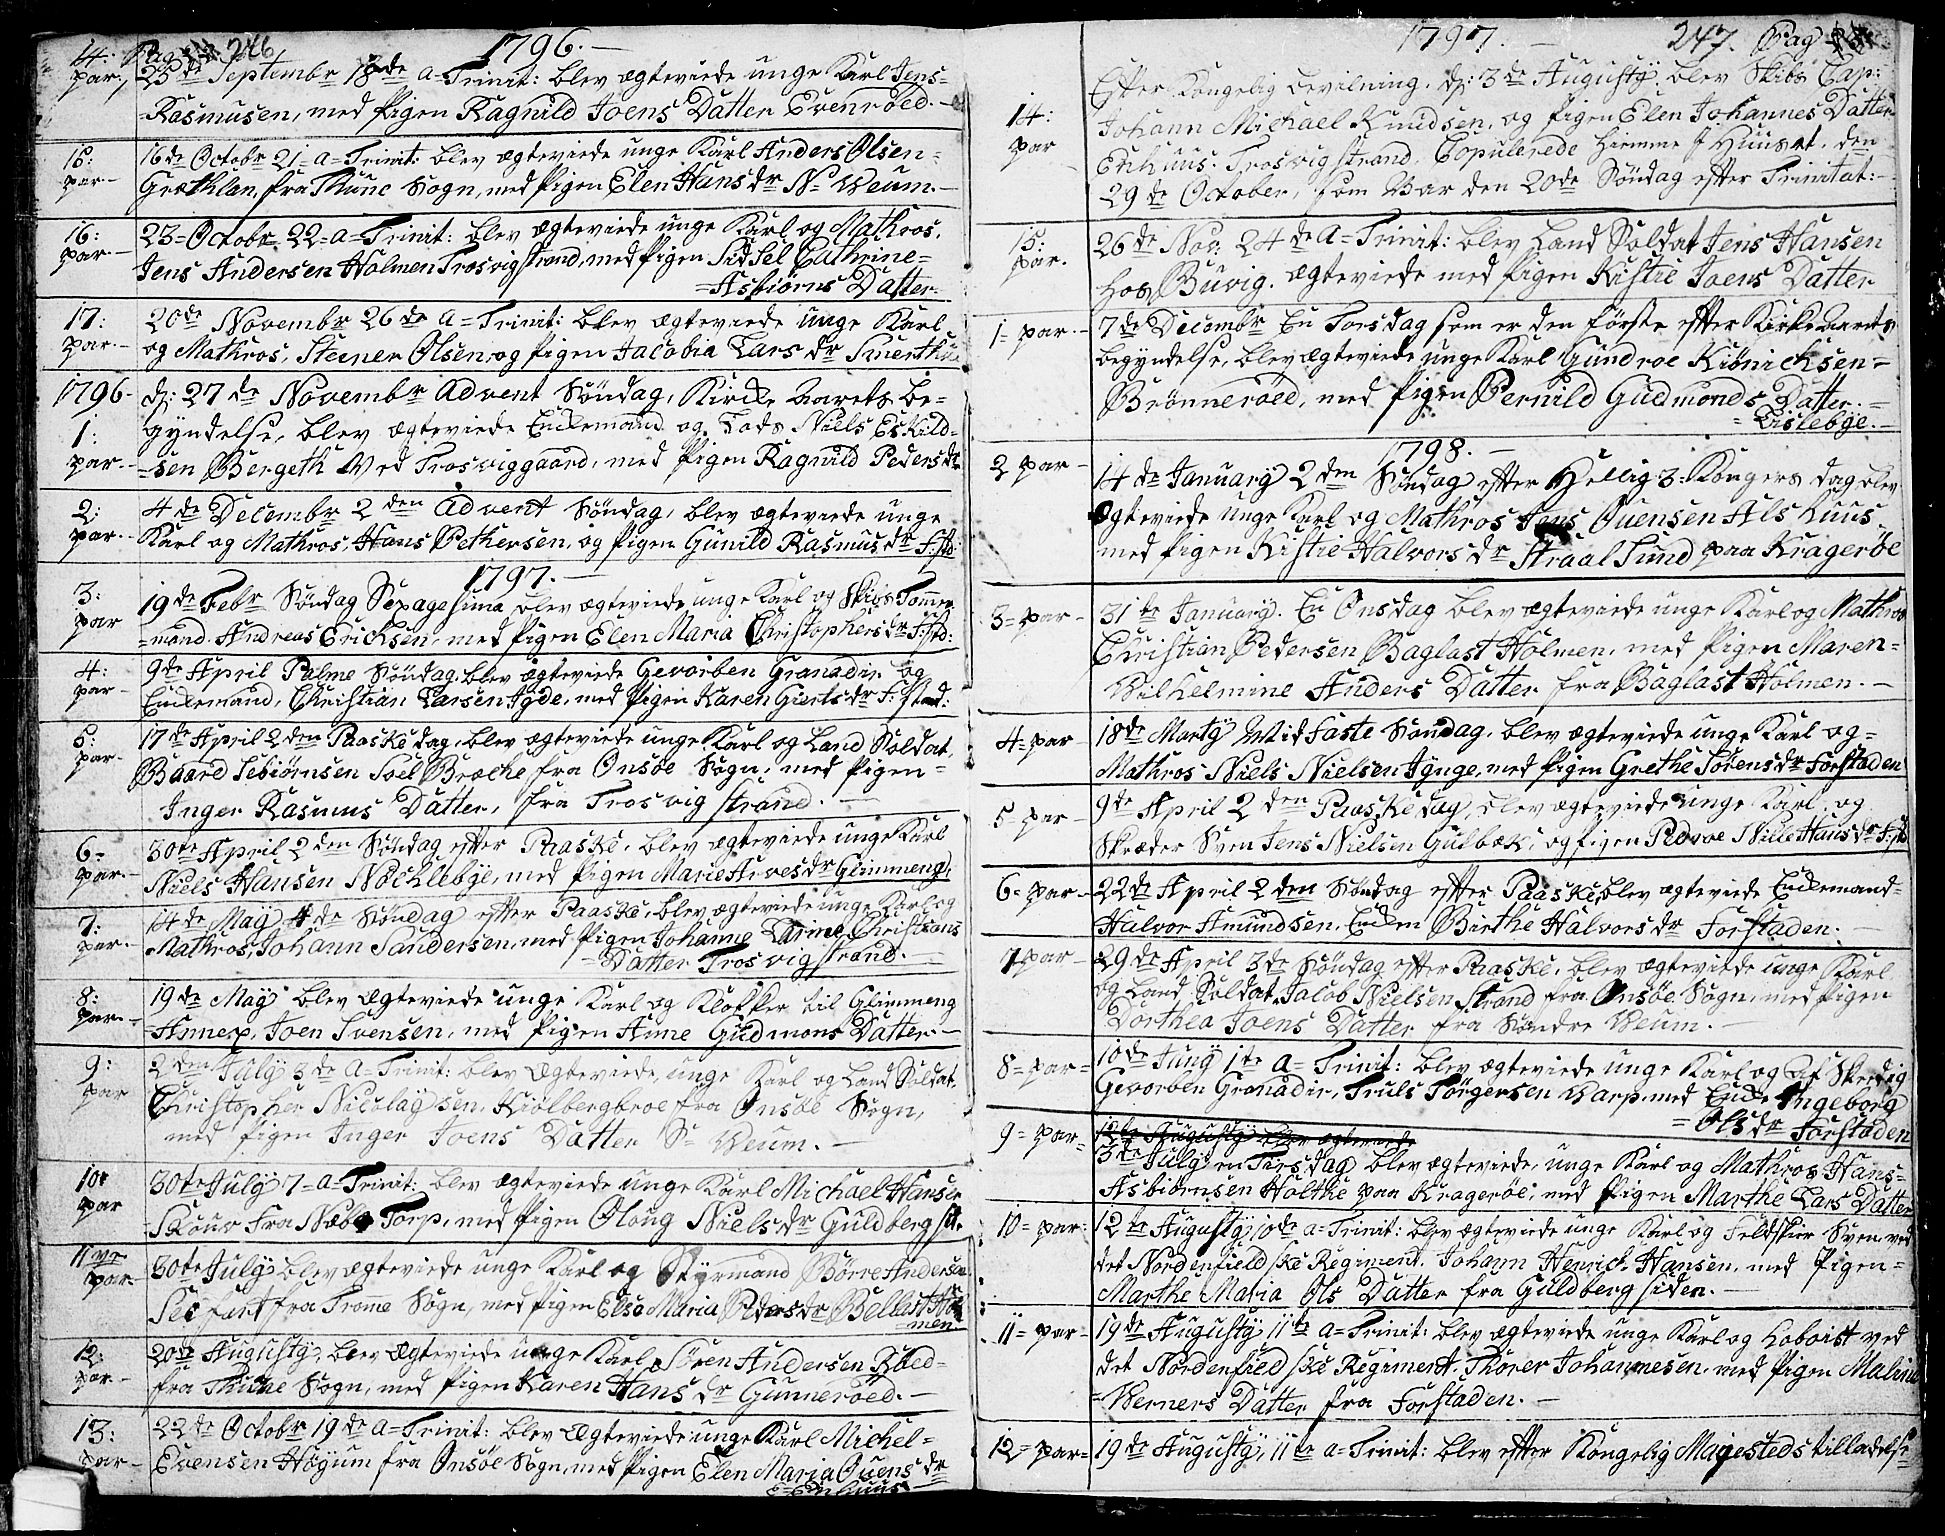 246
1796.
14.
par.
25de Septembr 18de a=Trinit: blev ægteviede unge Karl Jens=
Rasmusen, med Pigen Ragnild Joens Datter Evenröed.
15:
par.
16de Octobr 21=a=Trinit: blev ægteviede unge Karl Anders Olsen=
Græthlen, fra Thune Sogn, med Pigen Elen Hans dr No Weum.
16:
par
23=Octobr 22=a=Trinit: blev ægteviede unge Karl og Mathros,
Jens Andersen Holmen Trosvigstrand, med Pigen Sidsel Cathrine=
=Asbiörns Datter.
17:
par.
20de Novembr 26de a=Trinit: blev ægteviede unge Karl
og Mathros, Steener Olsen, og Pigen Jacobia Lars dr
1796
1:
par.
d: 27de Novembr Advent Söndag, Kirke Aarets be=
gyndelse, blev ægteviede Enckemand og Lods Niels Eskild=
=sen Bergeth Ved Trosviggaard, med Pigen Ragnild Peders dr
2:
par.
4de Decembr 2den Advent Söndag, blev ægteviede unge
Karl og Mathros, Hans Pethersen, og Pigen Gunild Rasmus dr F:st:
1797.
3:
par
19de Febr Söndag Sexagesima blev ægteviede unge Karl og Skibs Tömmer
=mand Andreas Erichsen, med Pigen Elen Maria Christophers dr F:std:
4:
par
9de April Palme Söndag, blev ægteviede Gevorben Granadir og
Enckemand, Christian Larsen Igde, med Pigen Karen Gierts dr F:stad:
5:
par.
17de April 2den Paaske dag, blev ægteviede unge Karl og Land Soldat,
Baard Sebiörnsen Soel Broche, fra Onsöe Sogn, med Pigen=
Inger Rasmus Datter, fra Trosvig strand.
6=
par.
30te April 2den Söndag efter Paaske, blev ægteviede unge Karl
Niels Hansen Nöcklebye, med Pigen Marie Arves dr Glimmeng,
7:
par.
14de May 4de Söndag efter Paaske, blev ægteviede unge Karl og
Mathros, Johann Sandersen, med Pigen Johanne Carine Christians
=Datter Trosvig strand.
8:
par.
19de May blev ægteviede unge Karl og Klokker til Glimmeng
Annex, Joen Svensen, med Pigen Anne Gudmons Datter.
9:
par
2den July 3de a=Trinit: blev ægteviede, unge Karl og Land Soldat,
Christopher Nicolaysen, Kiölbergbroe fra Onsöe Sogn,
med Pigen Inger Joens Datter So Weum.
10
par
30te July 7=a=Trinit: blev ægteviede unge Karl Michael Hansen
Skour fra Næbe Torp, med Pigen Oloug Niels dr Guldberg sit.
11ve
par.
30te July blev ægteviede unge Karl og Styrmand Börre Andersen
fra Tromö Sogn, med Pigen Else Maria Peders dr Bellast Hol
=men
12:
par
20de Augusty, blev ægteviede unge Karl Sören Andersen
fra Thune Sogn, med Pigen Karen Hans dr Gunneröed.
13:
par
22de Octobr 19de a=Trinit: blev ægteviede unge Karl Michel=
Evensen Höyum fra Onsöe Sogn, med Pigen Elen Maria Ouens dr
=Enhuus
1797.
247. Pag
14:
par
Efter Kongelig bevilning, d: 3de Augusty, blev Skibs Cap:
Johann Michael Knudsen, og Pigen Elen Johannes Datter
Enhuus. Trosvig strand, Copulerede hiemme I Huuset, den
29de October, som Var den 20de Söndag efter Trinitat:
15:
par.
26de Nov: 24de a=Trinit: blev Land Soldat Jens Hansen
hos Buvig, ægteviede med Pigen Kistie Joens Datter
1=par.
7de Decembr En Torsdag som er den förste efter Kirke Aarets
begyndelse, blev ægteviede unge Karl Gundroe Kiönicksen=
Brönneröed, med Pigen Pernild Gudmonds Datter.=
=Lislebye.
1798.
2 par
14de January 2den Söndag efter Hellig 3: Kongers dag blev
ægteviede unge Karl og Mathros Jens Ouensen Als Huus
med Pigen Kistie Halvors dr Straal Sund paa Kragerøe
3=par
31te January. En Onsdag blev ægteviede unge Karl og Mathros
Christian Pedersen Baglast Holmen, med Pigen Maren=
Wilhelmine Anders Datter fra Baglast Holmen.
4=par
18de Marty Mid Faste Söndag, blev ægteviede unge Karl og=
Mathros Niels Nielsen Iynge, med Pigen Grethe Sörens dr Forstaden
5 par
9de April 2den Paaske dag, blev ægteviede unge Karl og
Skræder Sven Jens Nielsen Gulbæk, og Pigen Pedroe Nille Hans dr F:st:
6=par
22de April 2den Söndag efter Paaske, blev ægteviede Enckemand=
Halvor Amundsen, Enken Birthe Halvors dr Forstaden.
7 par
29de April 3de Söndag efter Paaske, blev ægteviede unge Karl
og Land Soldat, Jacob Nielsen Strand fra Onsöe Sogn, med Pigen
Dorthea Joens Datter fra Søndre Weum.
8=par=
10de Juny 1te a=Trinit: blev ægteviede unge Karl og af Skeedig
Gevorben Granadir, Truls Törgersen Warp, med Enke Ingeborg
=Ols dr Forstaden
9=par=
12te Augusty blev ægteviede
3de July en Tirsdag blev ægteviede, unge Karl og Mathros Hans=
Asbiörnsen Holthe paa Kragerøe, med Pigen Marthe Lars Datter
10=par:
12te Augusty, 10de a=Trinit: blev ægteviede unge Karl og Feldskier Sven ved
det Nordenfield ske Regiment, Johann Henrich Hansen, med Pigen=
Marthe Maria Ols Datter fra Guldberg siden.
11=par
19de Augusty 11te a=Trinit: blev ægteviede unge Karl og Hoboist ved
det Nordenfieldske Regiment, Thorer Johannesen, med Pigen Maline
=Werners Datter fra Forstaden.
12=par=
19de Augusty, 11te a=Trinit: blev efter Kongelig Mayesteds tilladelse